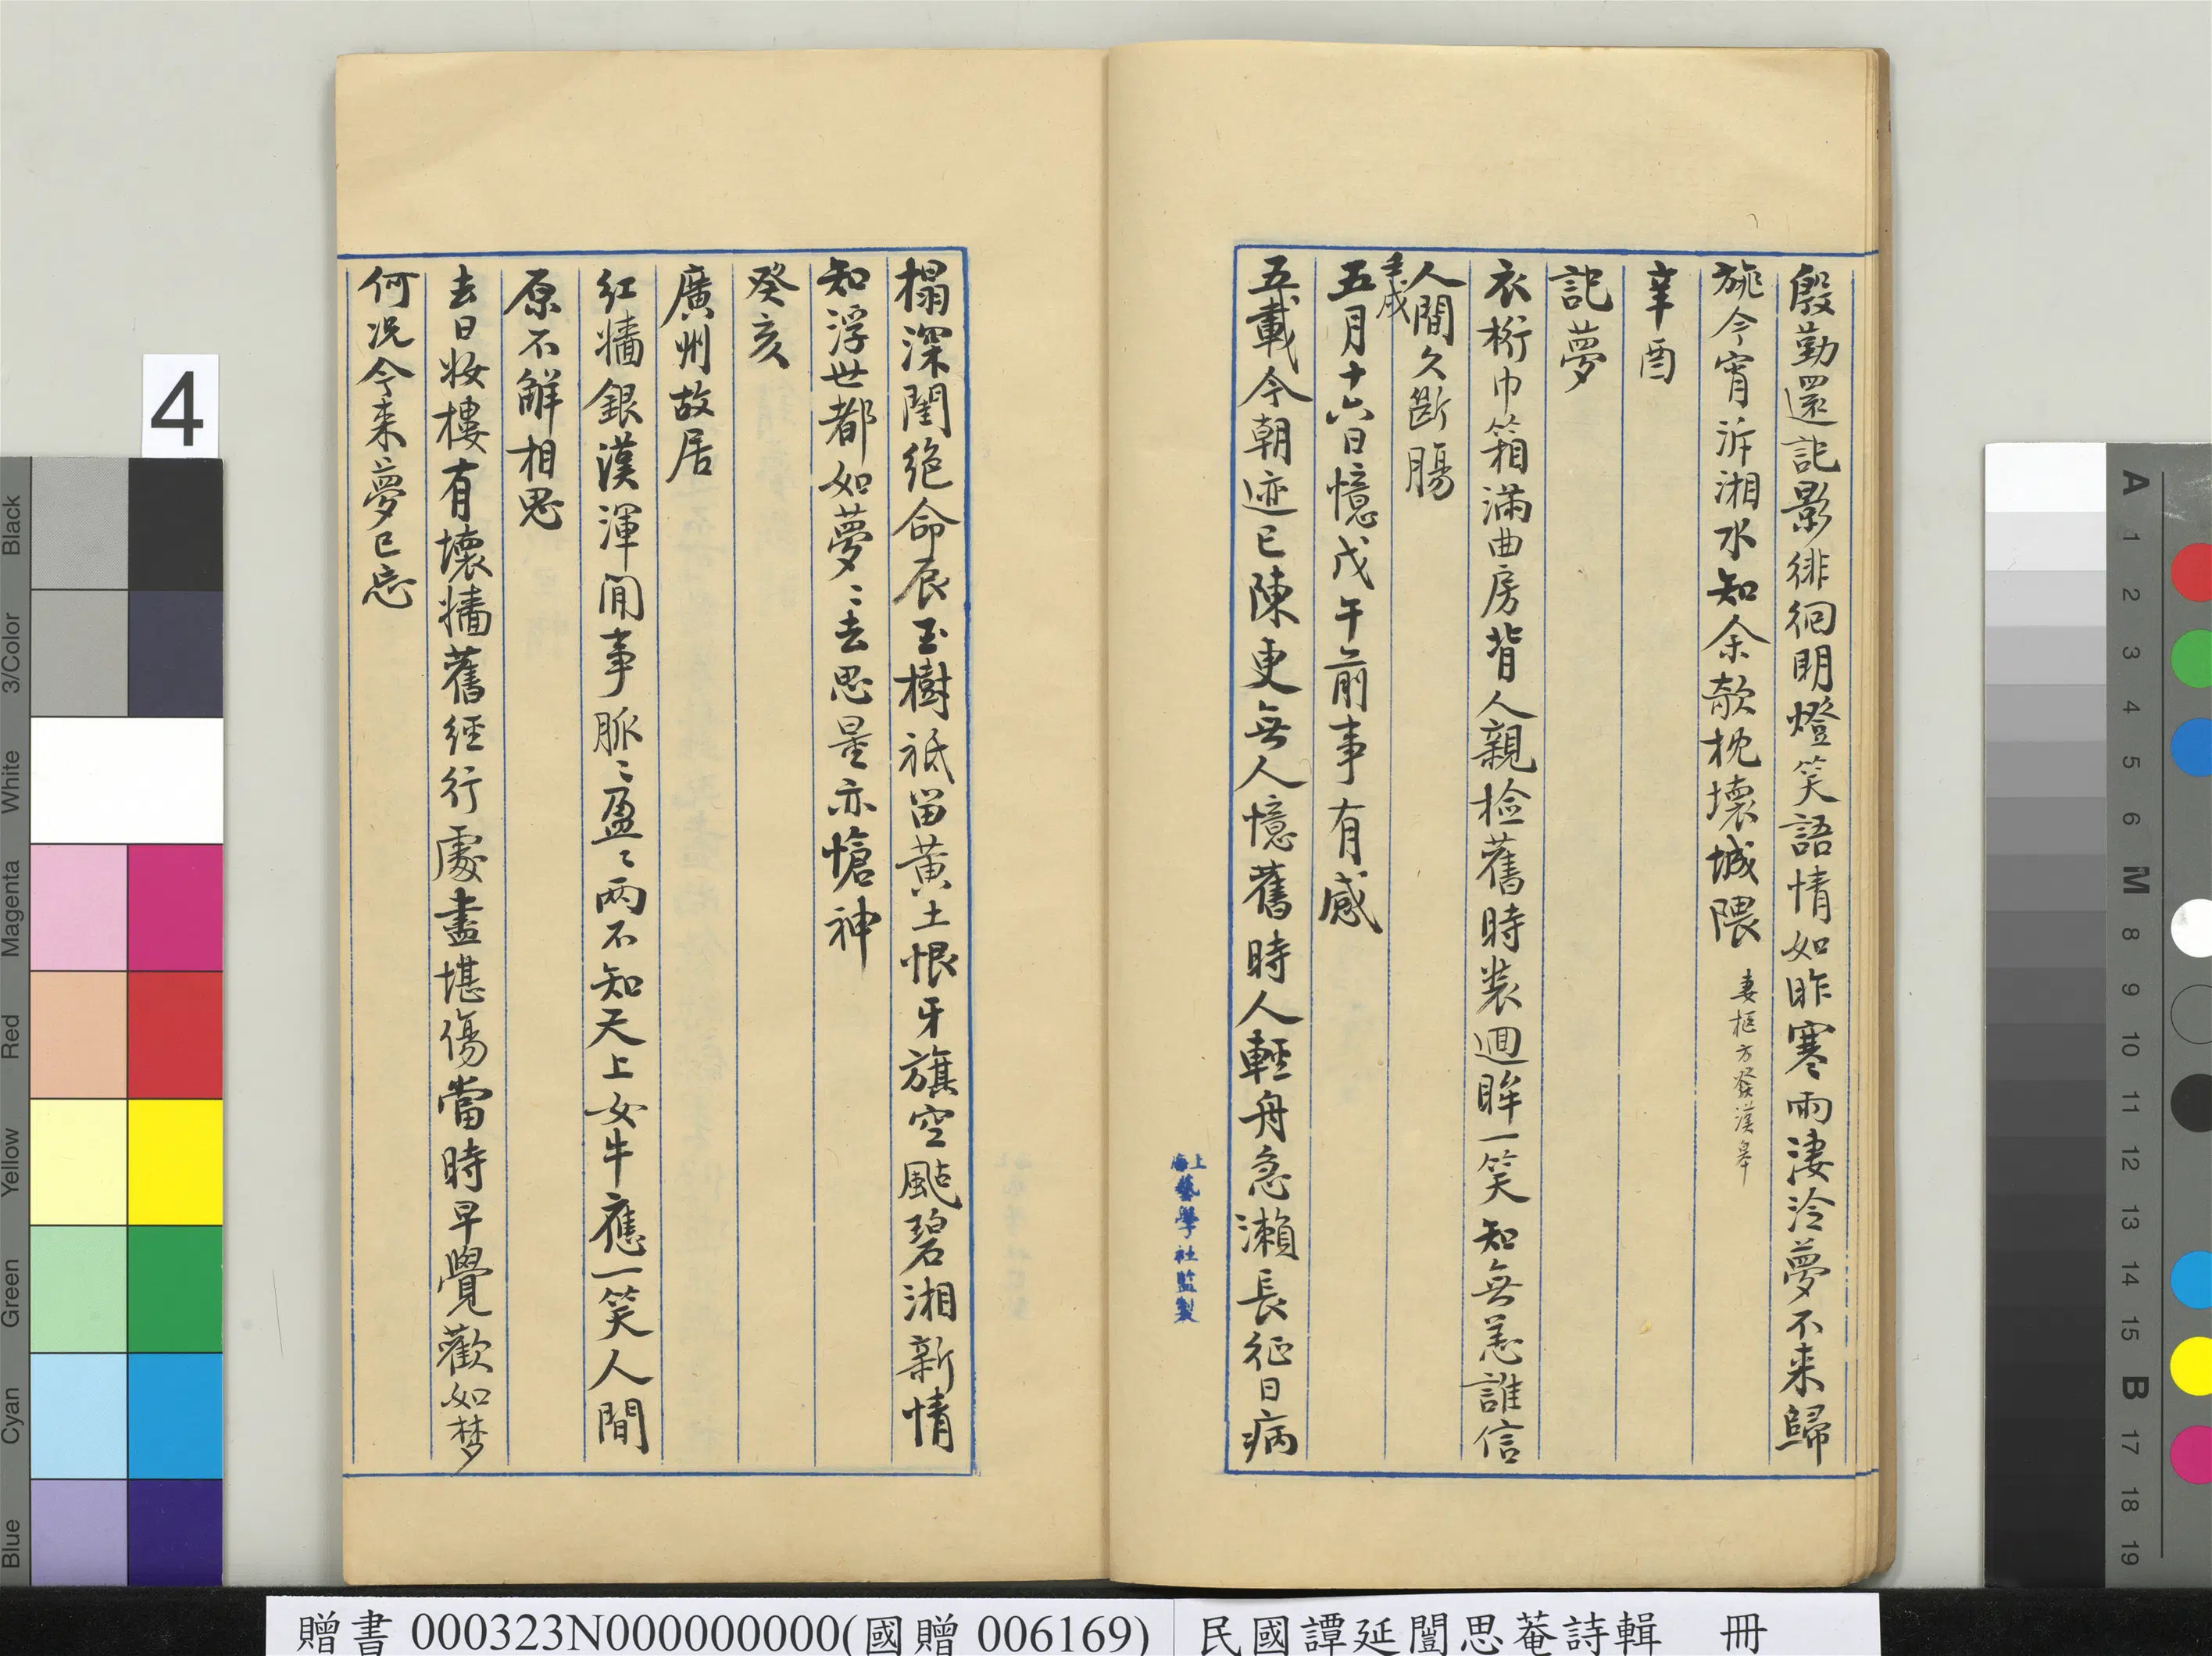 殷勤還記影徘徊明燈笑語情如昨寒雨淒泠夢不来歸
旐今宵泝湘水知余欹枕壞城隈 妻柩方發漢皋
辛酉
記夢
衣桁巾箱滿曲房背人親檢舊時裝迴眸一笑知無恙誰信
人間久斷腸
壬戌
五月十六日憶戊午前事有感
五載今朝迹已陳更無人憶舊時人輕舟急瀨長征日病
上海藝學社監製
榻深閨絕命辰玉樹祇留黃土恨牙旗空颭碧湘新情
知浮世都如夢〻去思量亦愴神
癸亥
廣州故居
紅牆銀漢渾閒事脈〻盈〻兩不知天上女牛應一笑人間
原不解相思
去日妝樓有壞牆舊經行處盡堪傷當時早覺歡如梦
何况今来夢已忘
4
Black
3/Color
White
Magenta
Red
Yellow
Green
Cyan
Blue
A
1
2
3
4
5
6
M
8
9
10
11
12
13
14
15
B
17
18
19
贈書 000323N000000000(國贈 006169) 民國譚延闓思菴詩輯 冊